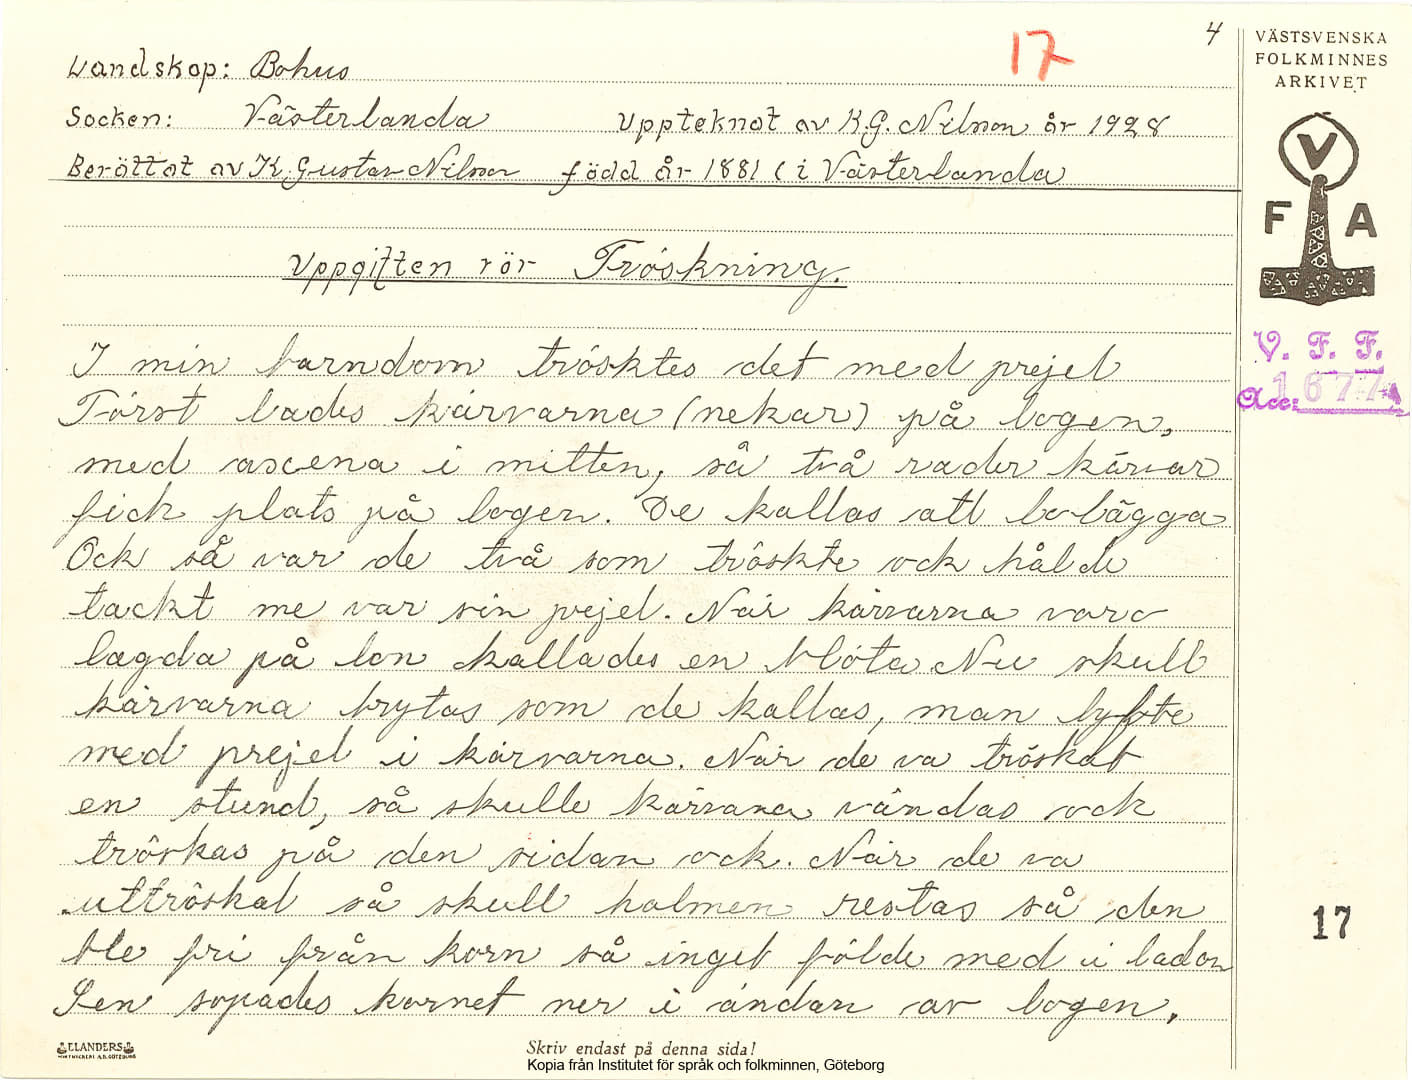 4
17
Landskap: Bohus
Socken: Västerlanda Uppteknat av K.G. Nilsson år 1928
Berättat av K. Gustav Nilsson född år 1881 (i Västerlanda
Uppgiften rör Tröskning.
I min barndom trösktes det med prejel
Först lades kärvarna (nekar) på logen,
med axena i mitten, så två rader kärvar
fick plats på logen. De kallas att lo-lägga
Ock så var de två som tröskte ock hålde
tackt me var sin prejel. När kärvarna vara
lagda på lon kallades en blöta Nu skull
kärvarna brytas som de kallas, man lyfte
med prejel i kärvarna. När de va tröskat
en stund, så skulle kärvana vändas ock
tröskas på den sidan ock. När de va
uttröskat så skull halmen restas så den
ble fri från korn så inget földe med i ladan
Sen sopades kornet ner i ändan av logen.
VÄSTSVENSKA
FOLKMINNES
ARKIVET
V
F A
V. F. F.
Acc: 1677
17
ELANDERS
Skriv endast på denna sida!
Kopia från Institutet för språk och folkminnen, Göteborg